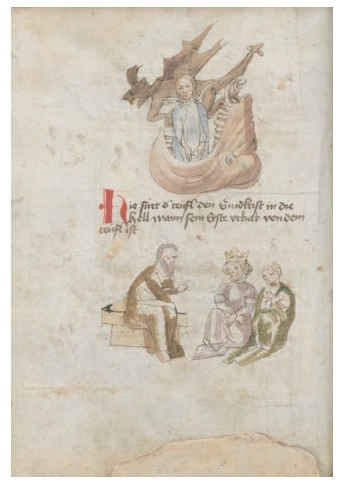 Hie furt d' teufl den Enndkrist in die
hell wann sein Erste vrhab von dem
teufl ist